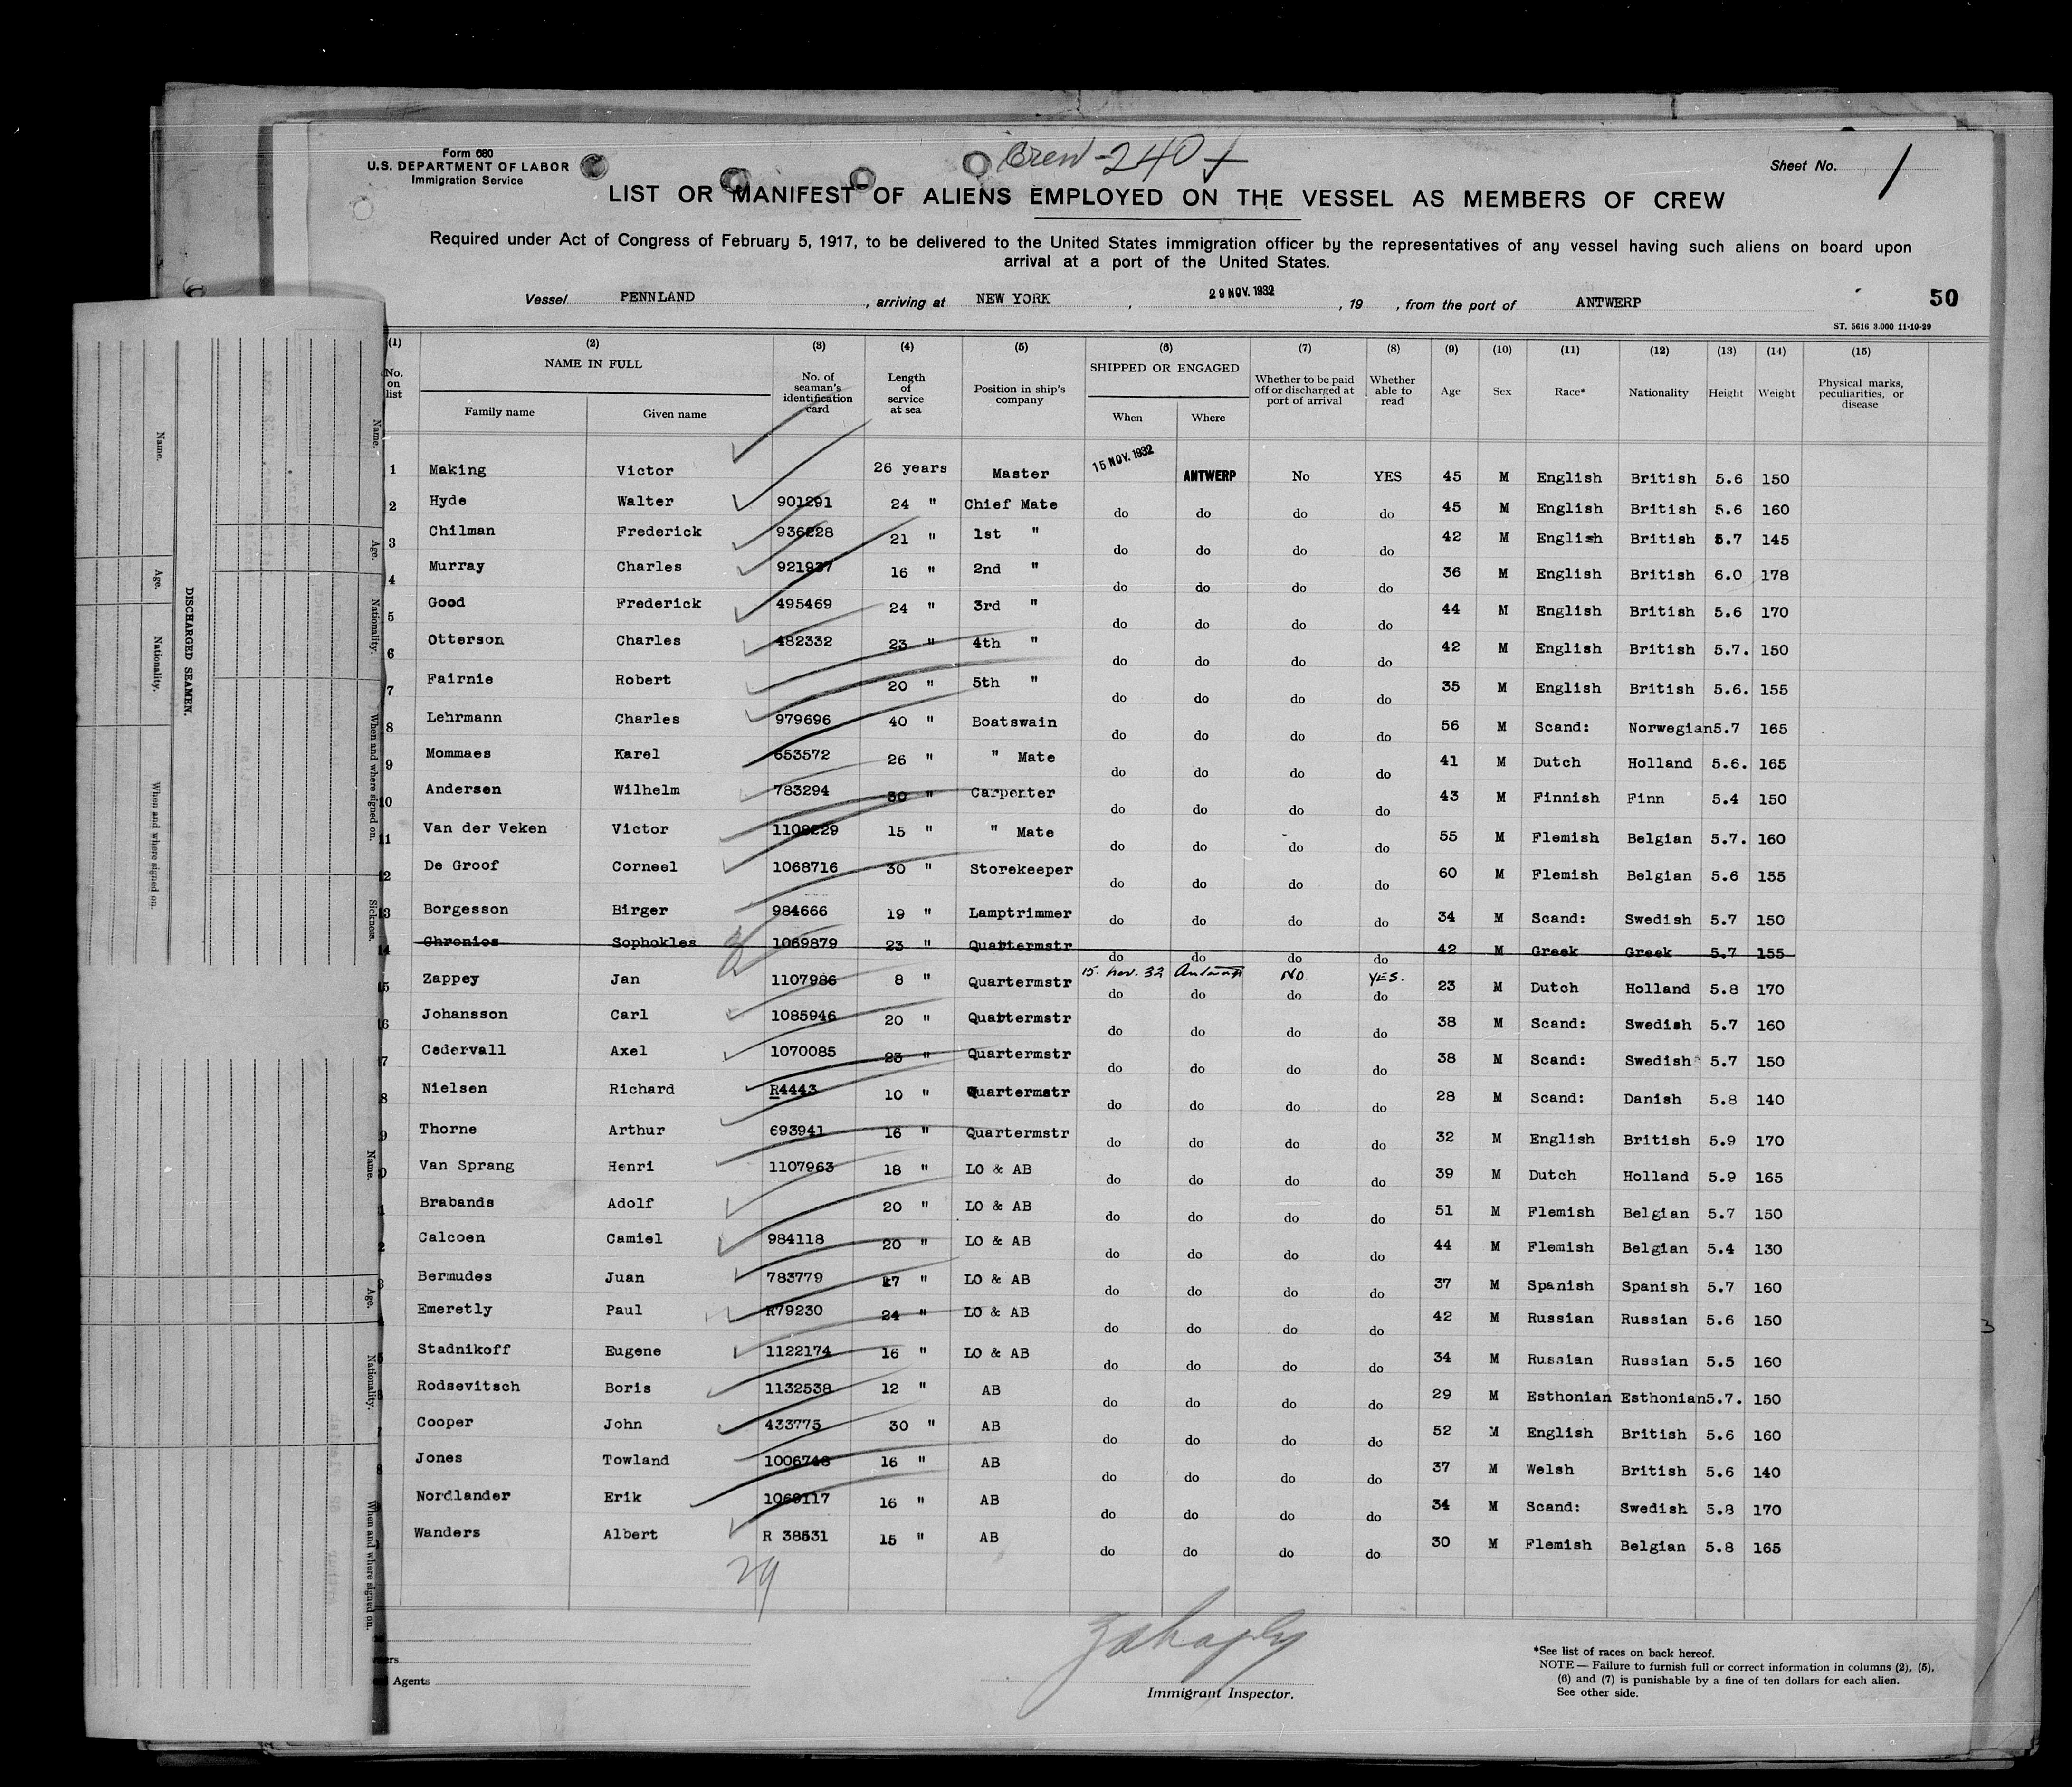 Crew - 240 +
Form 680
U.S. DEPARTMENT OF LABOR
Immigration Service
Sheet No. 1
LIST OR MANIFEST OF ALIENS EMPLOYED ON THE VESSEL AS MEMBERS OF CREW
Required under Act of Congress of February 5, 1917, to be delivered to the United States immigration officer by the representatives of any vessel having such aliens on board upon
arrival at a port of the United States.
Vessel PENNLAND, arriving at NEW YORK, 29 NOV. 1932, 19 , from the port of ANTWERP
50
ST. 5616 3.000 11-10-29
(1) (2) (3) (4) (5) (6) (7) (8) (9) (10) (11) (12) (13) (14) (15)
No. on list NAME IN FULL Family name Given name No. of seaman's identification card Length of service at sea Position in ship's company SHIPPED OR ENGAGED When Where Whether to be paid off or discharged at port of arrival Whether able to read Age Sex Race* Nationality Height Weight Physical marks, peculiarities, or disease
1 Making Victor 26 years Master 15 NOV. 1932 ANTWERP No YES 45 M English British 5.6 150
2 Hyde Walter 901291 24 " Chief Mate do do do do 45 M English British 5.6 160
3 Chilman Frederick 936228 21 " 1st " do do do do 42 M English British 5.7 145
4 Murray Charles 921937 16 " 2nd " do do do do 36 M English British 6.0 178
5 Good Frederick 495469 24 " 3rd " do do do do 44 M English British 5.6 170
6 Otterson Charles 482332 23 " 4th " do do do do 42 M English British 5.7. 150
7 Fairnie Robert 20 " 5th " do do do do 35 M English British 5.6. 155
8 Lehrmann Charles 979696 40 " Boatswain do do do do 56 M Scand: Norwegian 5.7 165
9 Mommaes Karel 653572 26 " " Mate do do do do 41 M Dutch Holland 5.6. 165
10 Andersen Wilhelm 783294 30 " Carperter do do do do 43 M Finnish Finn 5.4 150
11 Van der Veken Victor 1109229 15 " " Mate do do do do 55 M Flemish Belgian 5.7. 160
12 De Groof Corneel 1068716 30 " Storekeeper do do do do 60 M Flemish Belgian 5.6 155
13 Borgesson Birger 984666 19 " Lamptrimmer do do do do 34 M Scand: Swedish 5.7 150
14 Chronios Sophokles 1069879 23 " Quartermstr do do do do 42 M Greek Greek 5.7 155
15. nov. 32 Antwerp NO YES.
5 Zappey Jan 1107986 8 " Quartermstr do do do do 23 M Dutch Holland 5.8 170
6 Johansson Carl 1085946 20 " Quartermstr do do do do 38 M Scand: Swedish 5.7 160
7 Cedervall Axel 1070085 23 " Quartermstr do do do do 38 M Scand: Swedish 5.7 150
8 Nielsen Richard R4443 10 " Quartermstr do do do do 28 M Scand: Danish 5.8 140
9 Thorne Arthur 693941 16 " Quartermstr do do do do 32 M English British 5.9 170
0 Van Sprang Henri 1107963 18 " LO & AB do do do do 39 M Dutch Holland 5.9 165
Brabands Adolf 20 " LO & AB do do do do 51 M Flemish Belgian 5.7 150
2 Calcoen Camiel 984118 20 " LO & AB do do do do 44 M Flemish Belgian 5.4 130
3 Bermudes Juan 783779 17 " LO & AB do do do do 37 M Spanish Spanish 5.7 160
Emeretly Paul R79230 24 " LO & AB do do do do 42 M Russian Russian 5.6 150
Stadnikoff Eugene 1122174 16 " LO & AB do do do do 34 M Russian Russian 5.5 160
Rodsevitsch Boris 1132538 12 " AB do do do do 29 M Esthonian Esthonian 5.7. 150
Cooper John 433775 30 " AB do do do do 52 M English British 5.6 160
8 Jones Towland 1006748 16 " AB do do do do 37 M Welsh British 5.6 140
Nordlander Erik 1069117 16 " AB do do do do 34 M Scand: Swedish 5.8 170
Wanders Albert R 38531 15 " AB do do do do 30 M Flemish Belgian 5.8 165
29
Agents
Immigrant Inspector.
*See list of races on back hereof.
NOTE — Failure to furnish full or correct information in columns (2), (5),
(6) and (7) is punishable by a fine of ten dollars for each alien.
See other side.
DISCHARGED SEAMEN.
Name.
Age.
Nationality.
When and where signed on.
Name.
Age.
Nationality.
When and where signed on.
Sickness.
Name.
Age.
Nationality.
When and where signed on.